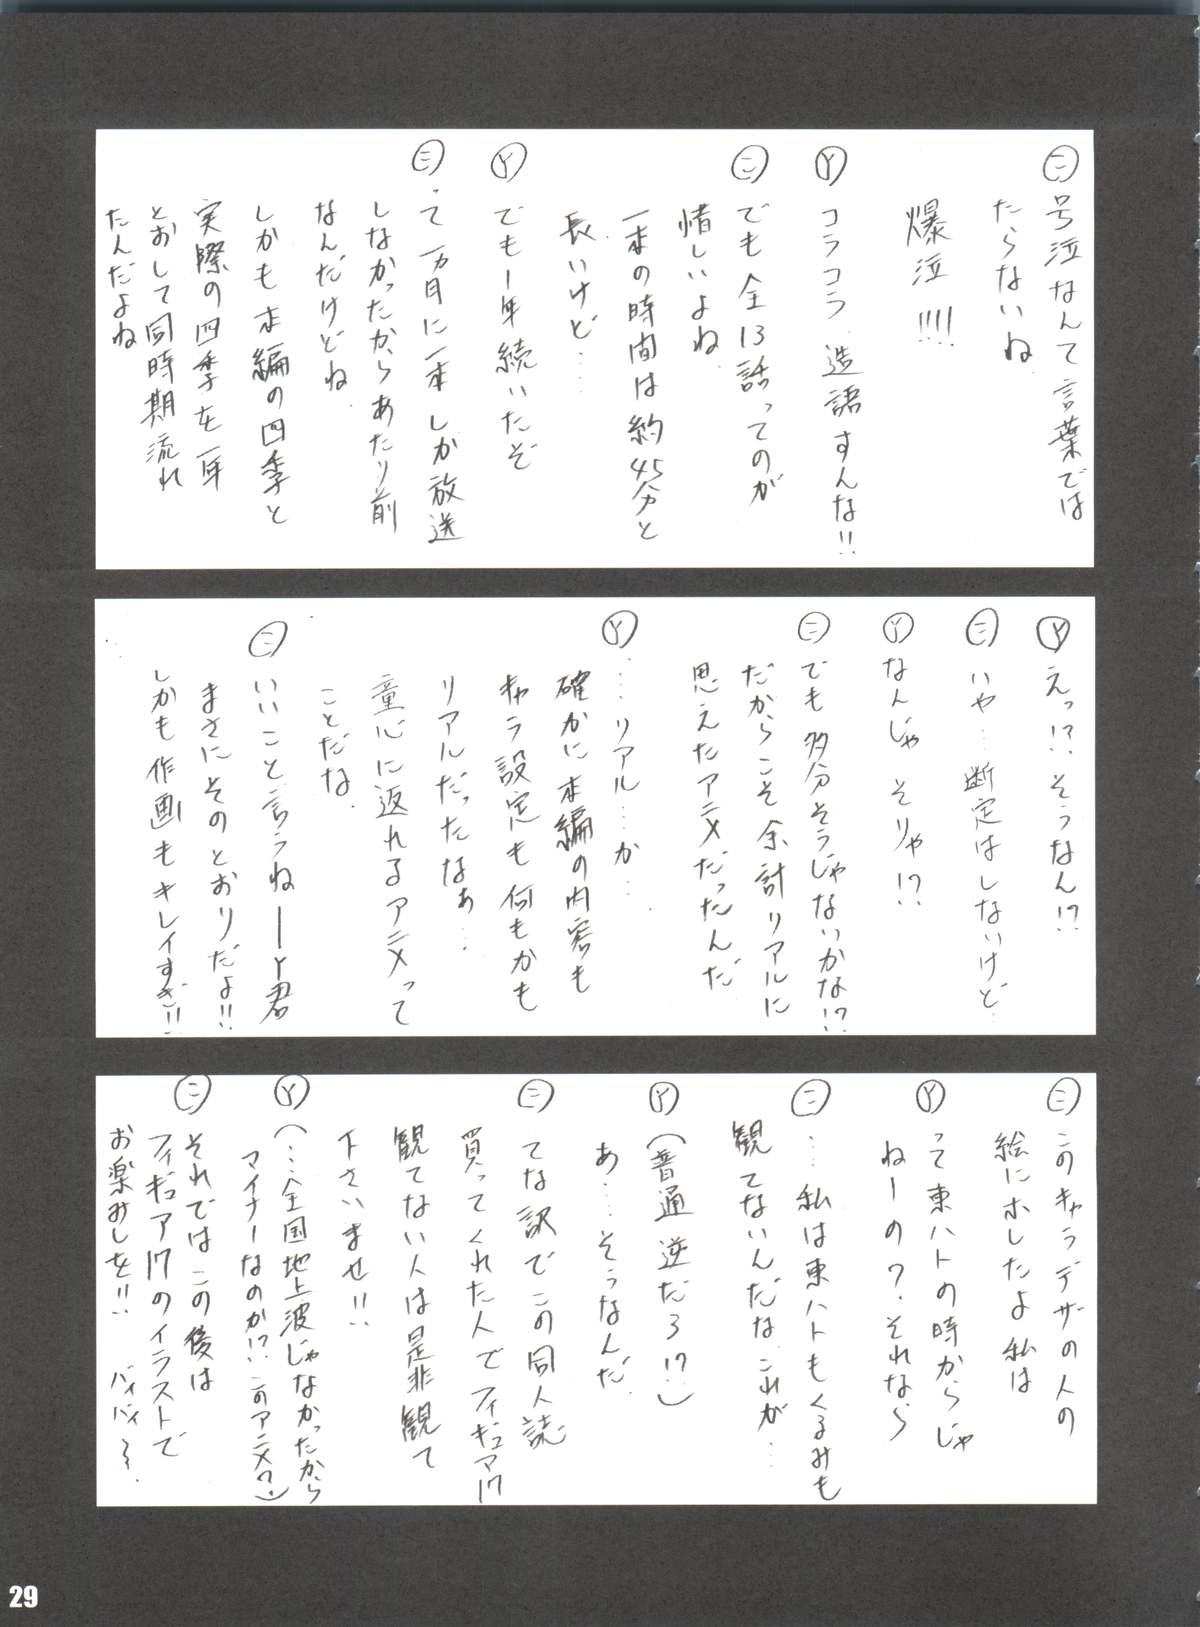 ㊁号泣なんて言葉では
たらないね
爆泣!!!!
Ⓨコラコラ、造語すんな!!
㊁でも全13話ってのが
惜しいよね
一本の時間は約45分と
長いけど……
Ⓨでも1年続いたぞ
㊁って一カ月に一本しか放送
しなかったからあたり前
なんだけどね
しかも本編の四季と
実際の四季を一年
とおして同時期流れ
たんだよね
Ⓨえっ!?そうなん!?
㊁いや…断定はしないけど…
Ⓨなんじゃそりゃ!?
㊁でも多分そうじゃないかな!?
だからこそ余計リアルに
思えたアニメだったんだ
Ⓨ……リアル…か…
確かに本編の内容も
キャラ設定も何もかも
リアルだったなぁ…
童心に返れるアニメって
ことだな
㊁いいこと言うねーY君
まさにそのとおりだよ!!
しかも作画もキレイすぎ!!
㊁このキャラデザの人の
絵にホレたよ私は
Ⓨって東ハトの時からじゃ
ねーの?それなら
㊁…私は東ハトもくるみも
観てないんだな これが…
Ⓨ(普通逆だろ!?)
あ……そうなんだ
㊁てな訳でこの同人誌
買ってくれた人でフィギュア17
観てない人は是非観て
下さいませ!!
Ⓨ(…全国地上波じゃなかったから
マイナーなのか!?このアニメ?)
㊁それではこの後は
フィギュア17のイラストで
お楽みしを!!バイバイ〜
29